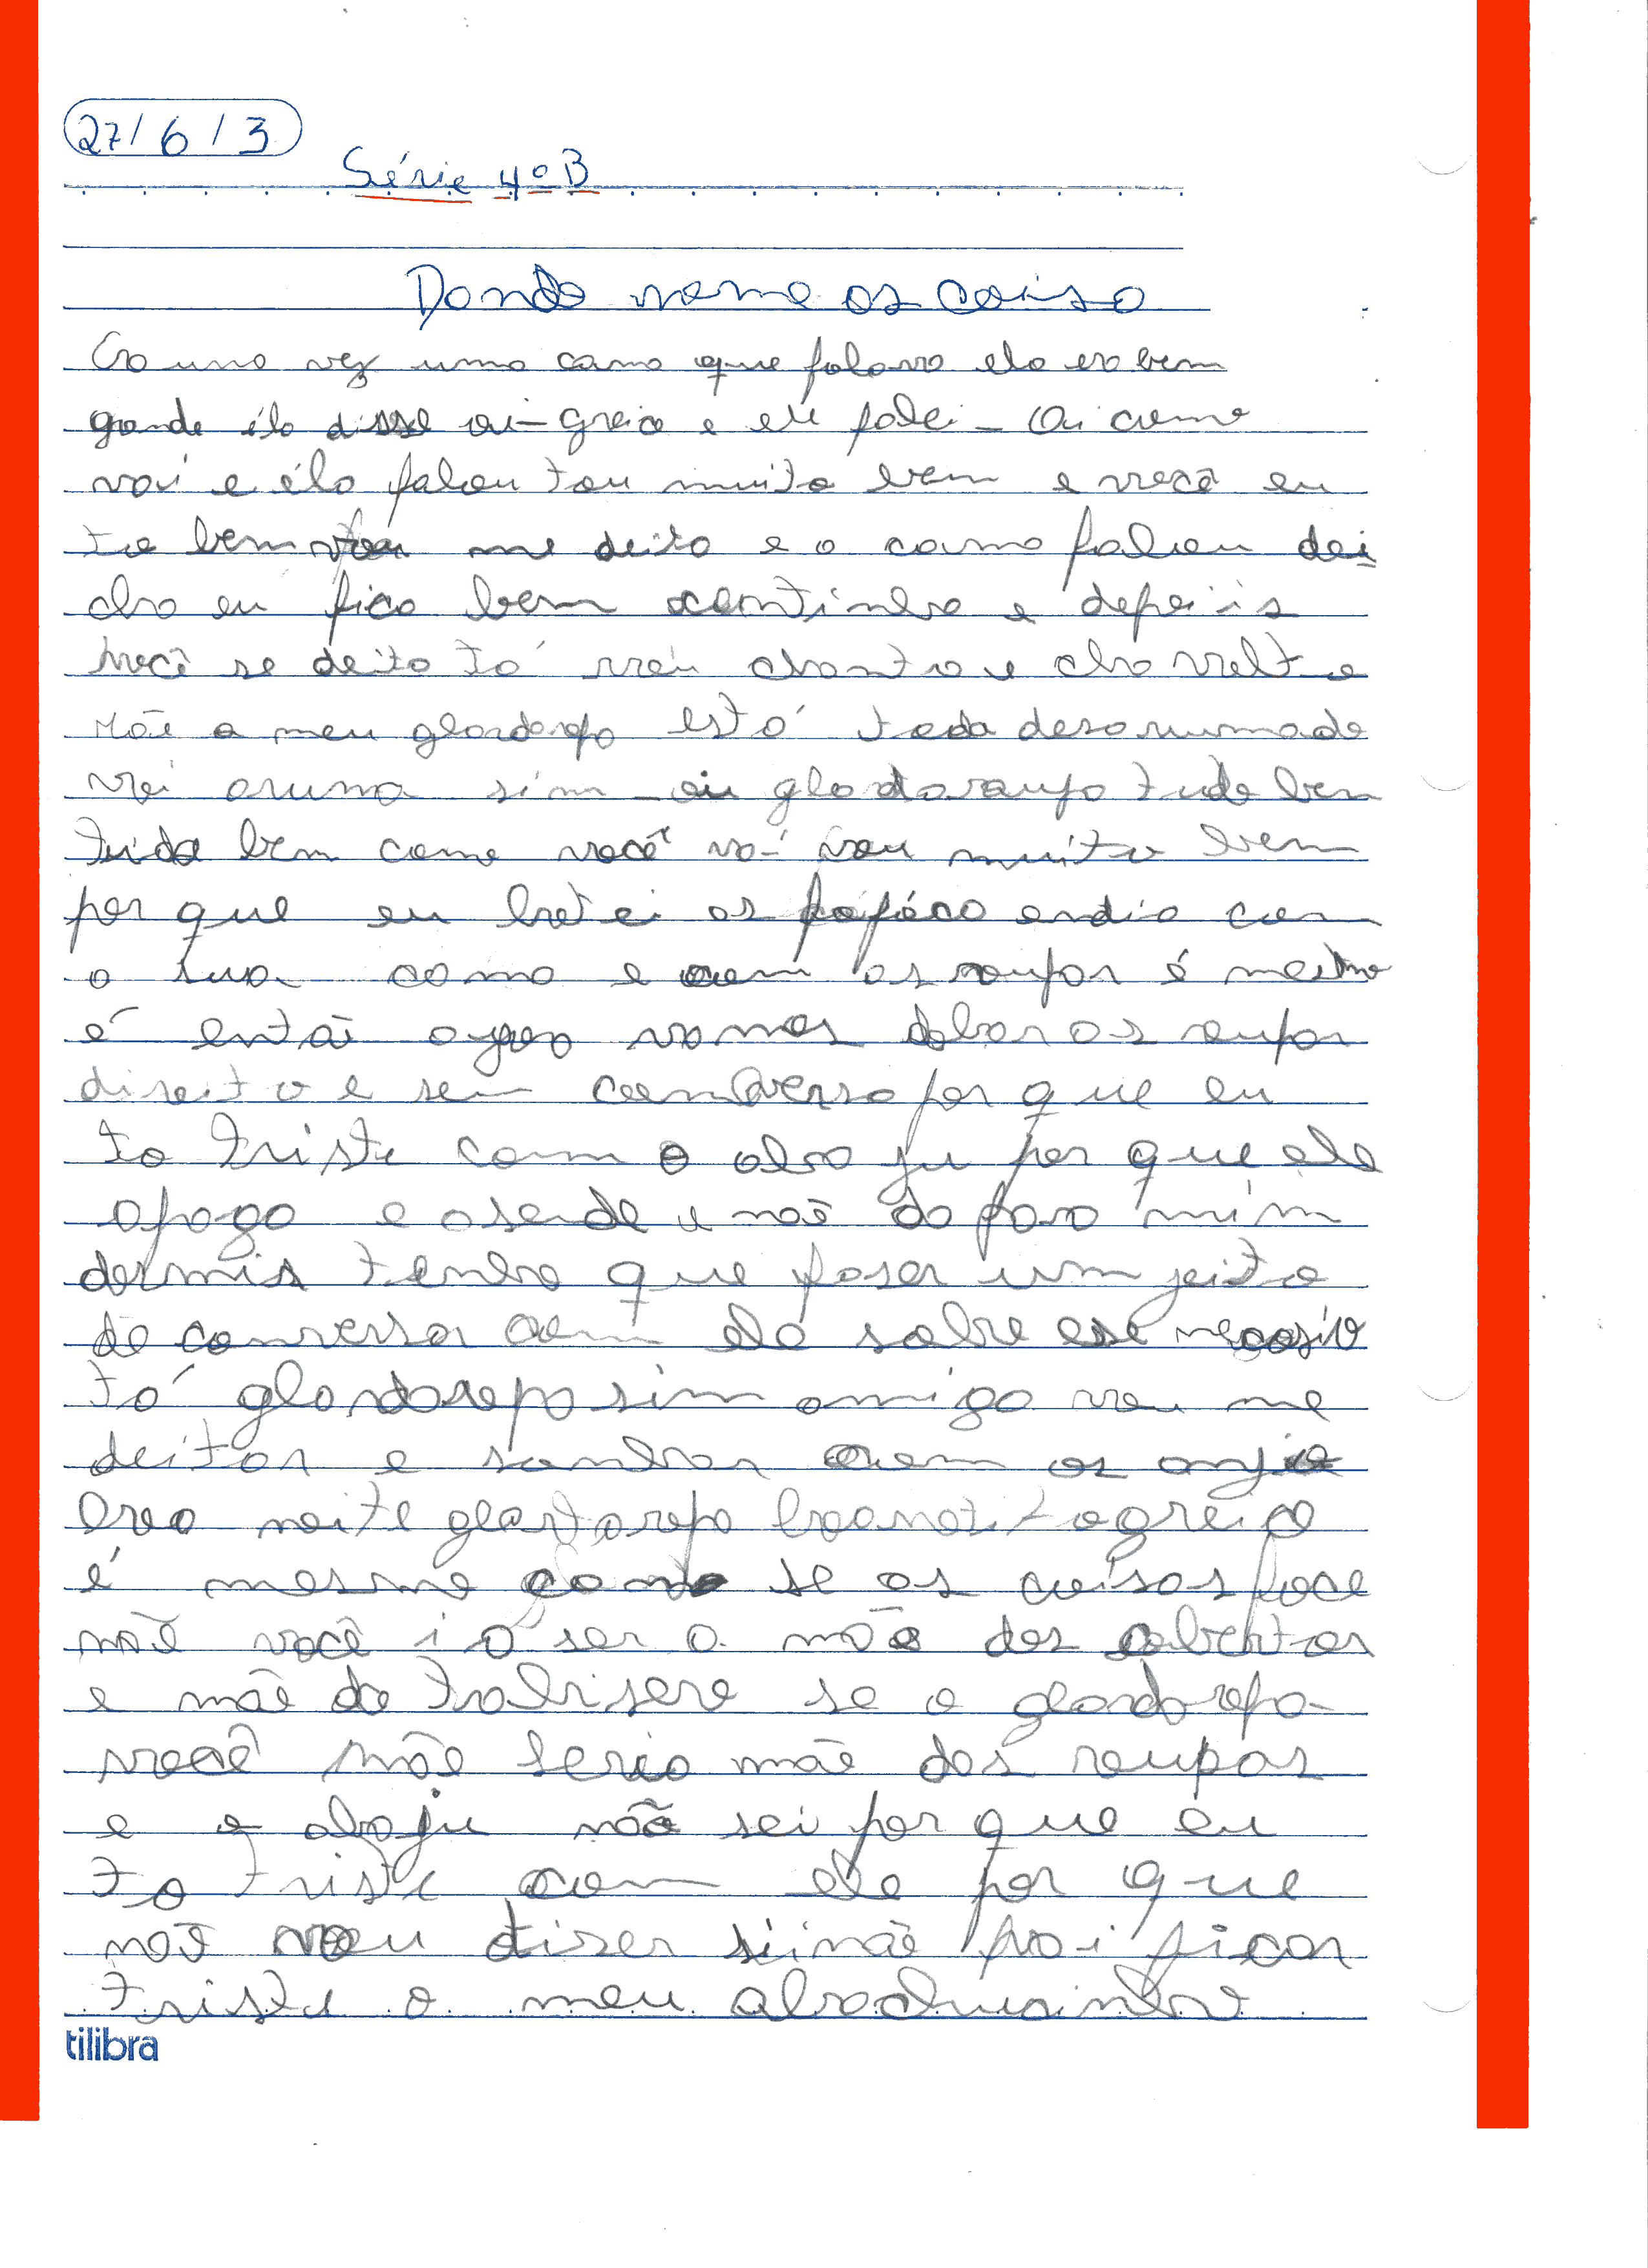 27/6/3
Série 4º B
Dando nome as coisa
Era uma vez uma cama que falava ela era bem
grande éla disse oi-greice e eu falei - Oi como
vai e éla falou tou muito bem e você eu
to bem vou me deita e a cama falou dei
cha eu fica bem xentinha e depois
você se deita tá vou chanta e cha volto
Mãe o meu glardaropo está todo desarumado
vai aruma sim - oi glodaraupo tudo bem
tudo bem como você vai vou muito bem
por que eu bot ei as fofóca endia com
a sua cama e com as roupas é mesmo
é então agora vamos dobar as roupar
direito e sem comversa por que eu
to triste com o aba ju por que ele
apaga e asende e não da para mim
dormir tenho que faser um jeito
de conversar com ele sobre esse negosio
tá glardaropo sim amiga vou me
deitar e sonhar com os anjo
boa noite glardaropo boanoti t greice
é mesmo como se as coisas foce
mãe você i a ser a mãe das cobertas
e mãe do trabisero se o glardaropo
você mãe seria mãe das roupas
e o abaju não sei por que eu
to triste com ele por que
não vou diser sinão vai ficar
triste o meu abachurinho
tilibra